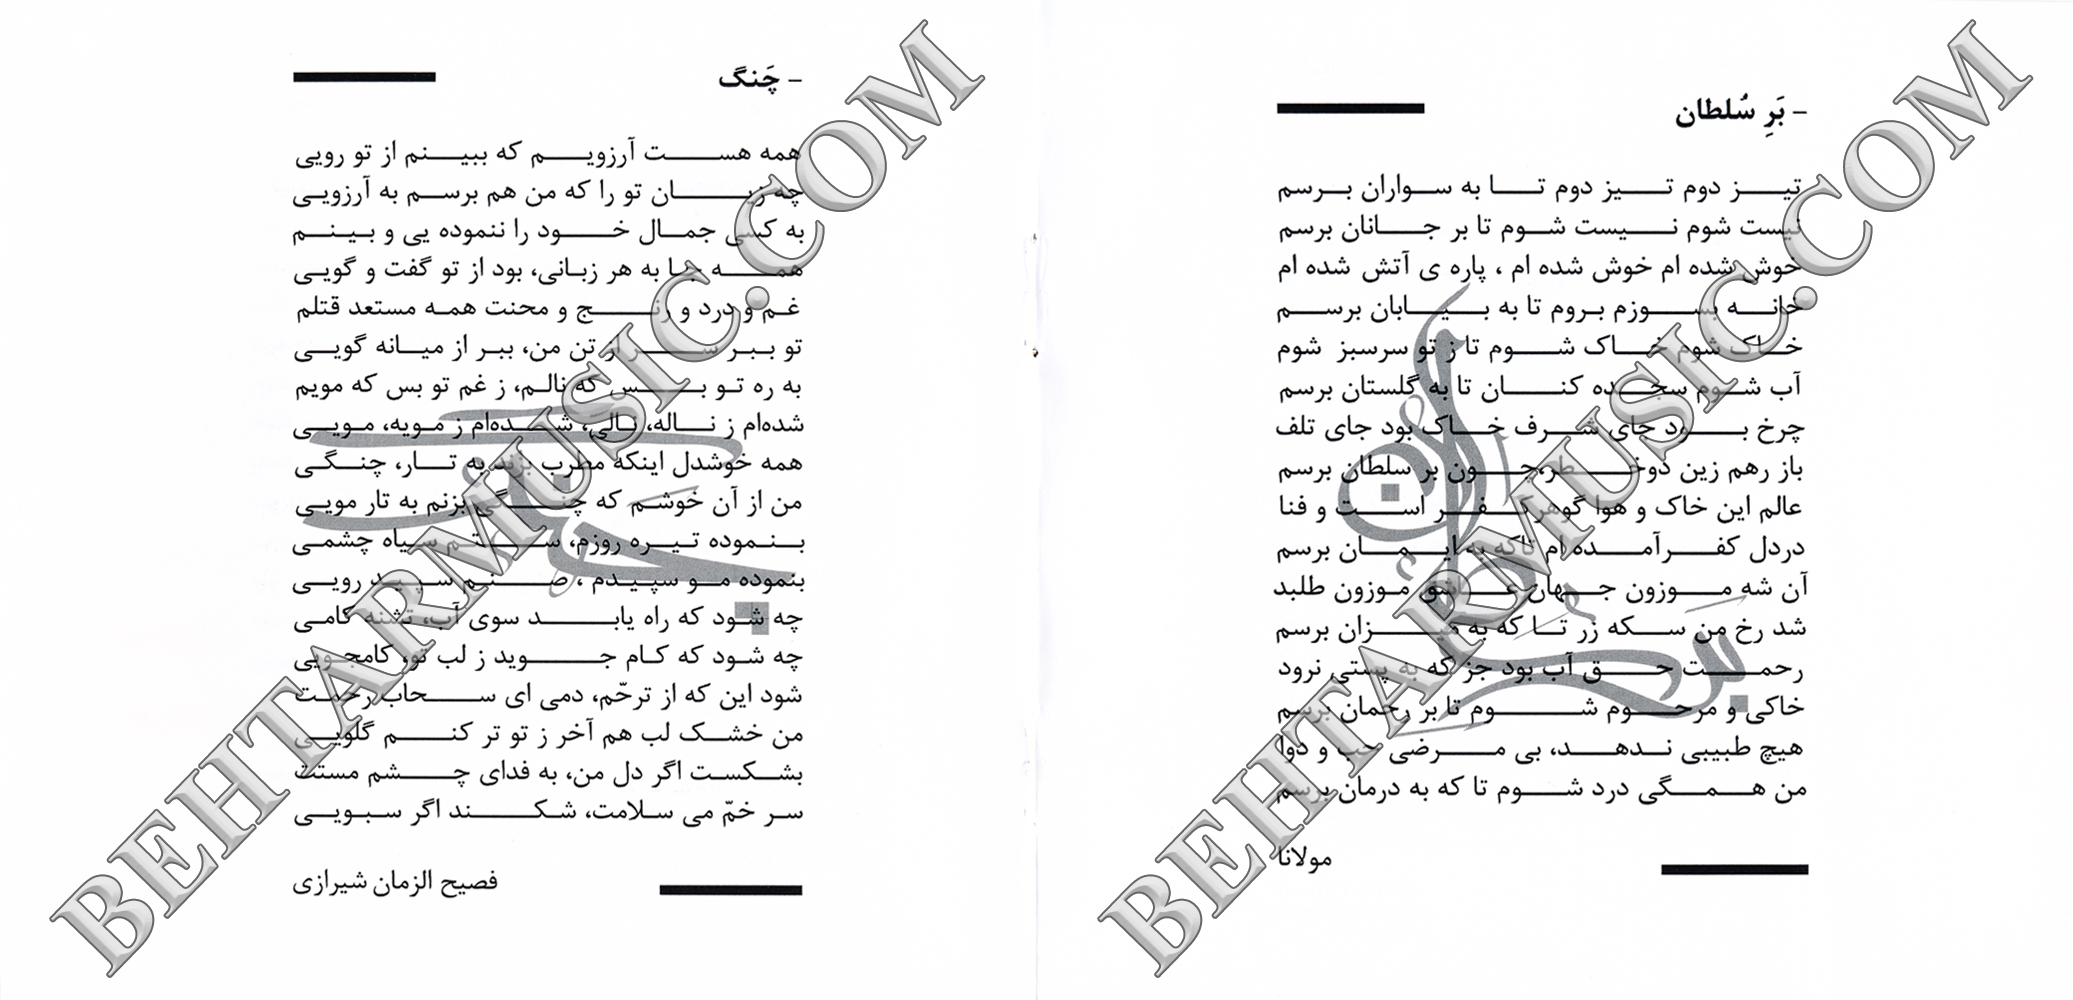 - بَرِ سُلطان
تیز دوم تیز دوم تا به سواران برسم
نیست شوم نیست شوم تا بر جانان برسم
خوش شده ام خوش شده ام ، پاره ی آتش شده ام
خانه بسوزم بروم تا به بیابان برسم
خاک شوم خاک شوم تا ز تو سرسبز شوم
آب شوم سجده کنان تا به گلستان برسم
چرخ بود جای شرف خاک بود جای تلف
باز رهم زین دوخطر،چون بر سلطان برسم
عالم این خاک و هوا گوهر کفر است و فنا
دردل کفرآمده ام تاکه به ایمان برسم
آن شه موزون جهان عاشق موزون طلبد
شد رخ من سکه زر تا که به میزان برسم
رحمت حق آب بود جز که به پستی نرود
خاکی و مرحوم شوم تا بر رحمان برسم
هیچ طبیبی ندهد، بی مرضی حب و دوا
من همگی درد شوم تا که به درمان برسم
مولانا
- چَنگ
همه هست آرزویم که ببینم از تو رویی
چه زیان تو را که من هم برسم به آرزویی
به کسی جمال خود را ننموده یی و بینم
همه جا به هر زبانی، بود از تو گفت و گویی
غم و درد و رنج و محنت همه مستعد قتلم
تو ببر سر از تن من، ببر از میانه گویی
به ره تو بس که نالم، ز غم تو بس که مویم
شده‌ام ز ناله، نالی، شده‌ام ز مویه، مویی
همه خوشدل اینکه مطرب بزند به تار، چنگی
من از آن خوشم که چنگی بزنم به تار مویی
بنموده تیره روزم، ستم سیاه چشمی
بنموده مو سپیدم ، صنم سپید رویی
چه شود که راه یابد سوی آب، تشنه کامی
چه شود که کام جوید ز لب تو، کامجویی
شود این که از ترحّم، دمی ای سحاب رحمت
من خشک لب هم آخر ز تو تر کنم گلویی
بشکست اگر دل من، به فدای چشم مستت
سر خمّ می سلامت، شکند اگر سبویی
فصیح الزمان شیرازی
چنگ
بر سلطان
BEHTARMUSIC.COM
BEHTARMUSIC.COM